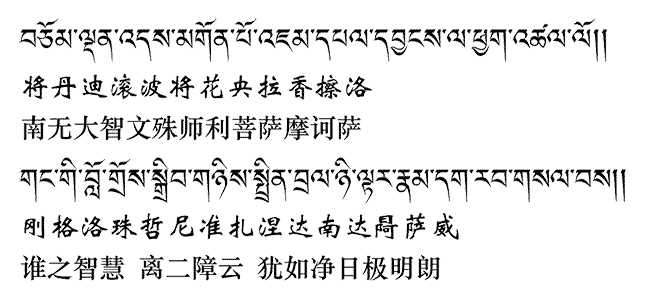 བཅོམ་ལྡན་འདས་མགོན་པོ་འཇམ་དཔལ་དབྱངས་ལ་ཕྱག་འཚལ་ལོ།།
将丹迪滚波将花央拉香擦洛
南无大智文殊师利菩萨摩诃萨
གང་གི་བློ་གྲོས་སྒྲིབ་གཉིས་སྤྲིན་བྲལ་ཉི་ལྟར་རྣམ་དག་རབ་གསལ་བས།།
刚格洛珠哲尼准扎涅达南达萨威
谁之智慧 离二障云 犹如净日极明朗